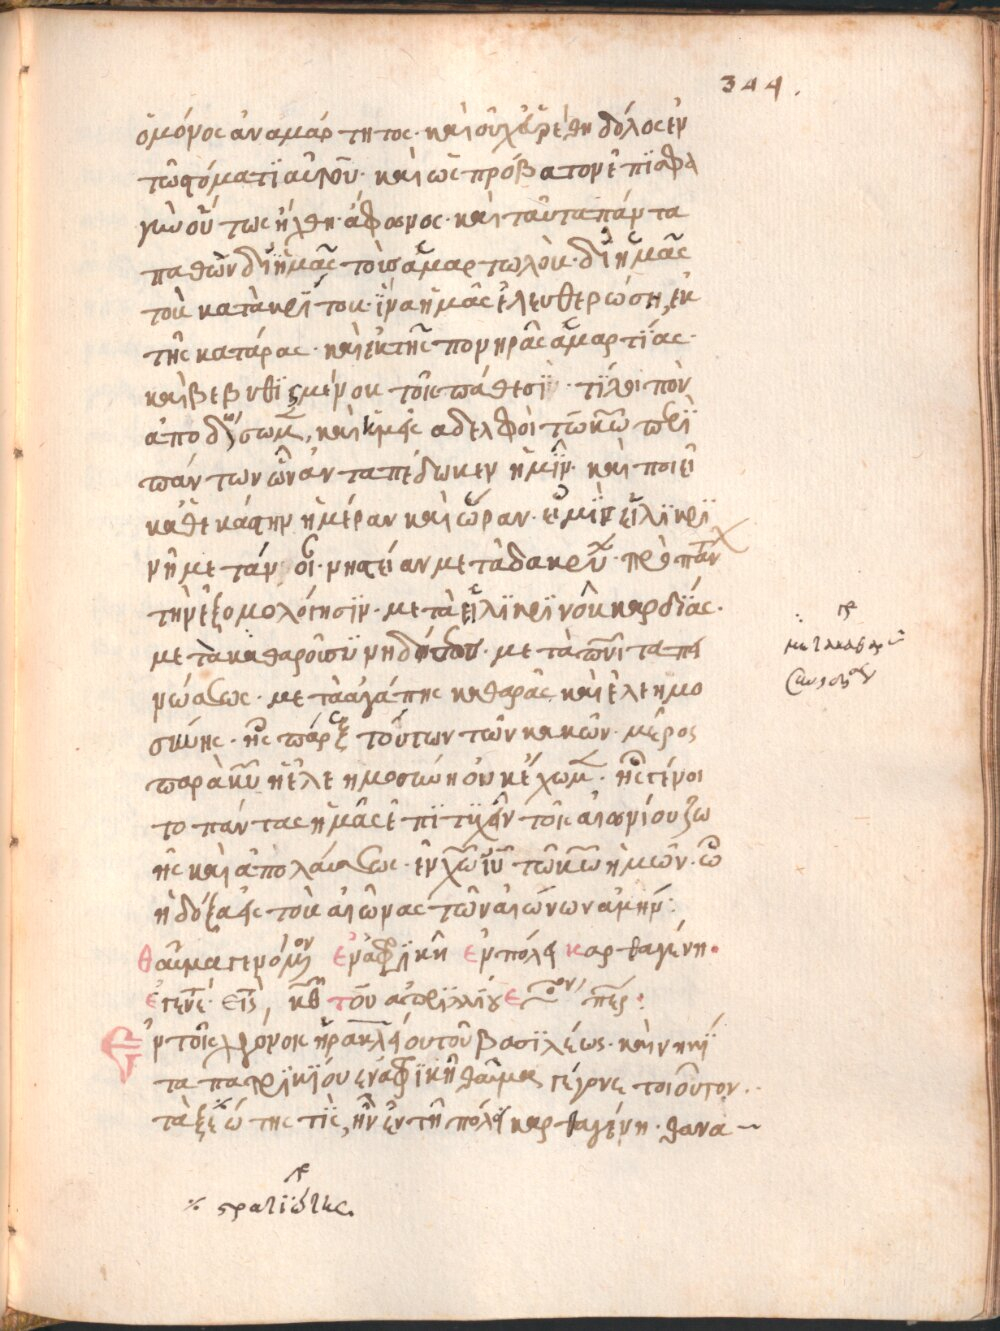 344.
ὁ μόνος ἀναμάρτητος· καὶ οὐχ εὑρέθη δόλος ἐν
τῶ στόματϊ αὐτοῦ· καὶ ὡς πρόβατον ἐπῒ σφα
γὴν οὕτως ἤχθη· ἄφωνος· καὶ ταῦτα πάντα
παθὼν δϊ ἡμᾶς τοὺς ἁμαρτωλοὺς· δϊ ἡμᾶς
τοὺς κατακρίτους· ἵνα ἡμᾶς ἐλευθερώση, ἐκ
τῆς κατάρας· καὶ ἐκ τῆς πονηρᾶς ἁμαρτΐας·
καὶ βεβυθισμένους τοῖς πάθεσϊ· τῒ λοιπὸν
ἀποδώσωμεν, καὶ ἡμεῖς ἀδελφοὶ τῶ κῶ περὶ
πάντων ὧν ἀνταπέδωκεν ἡμῖν· καὶ ποιεῖ
καθεκάστην ἡμέραν καὶ ὥραν· εἰ μὴ εἰλϊκρϊ
νῆ μετάνοι· νηστείαν μετὰ δακρύ· πρὸ πάν
τὴν ἐξομολόγησϊν· μετὰ εἰλϊκρϊνοῦς καρδΐας·
μετὰ καθαροῦ συνηδότος· μετὰ ταπει
νώσεως· μετὰ ἀγάπης καθαρᾶς καὶ ἐλεημο
σύνης· ἧς πάρεξ τούτων τῶν κακῶν· μέρος
παρὰ κυ ἢ ἐλεημοσύνη οὐκ ἔχωμεν· ἧς γένοι
το πάντας ἡμᾶς ἐπιτυχεῖν τοῖς αἰωνίου ζω
ῆς καὶ ἀπολαύσεως· ἐν χῶ ιυ τῶ κῶ ἡμῶν· ὧ
ἡ δόξα εἰς τοὺς αἰῶνας τῶν αἰώνων ἀμήν:
θαῦμα γενόμενον ἐν ἀφρϊκῆ ἐν πόλει καρθαγένη·
ἐγένε εἰς, κβ τοῦ ἀπριλλίου
Ἐν τοῖς χρόνοις ἡρακλείου τοῦ βασϊλέως· καὶ νικήϊ
τα πατρϊκΐου ἐν ἀφρϊκῆ θαῦμα γέγονε τοιοῦτον..
ταξεώτης τϊς, ἦν ἐν τῆ πόλει καρθαγένη· θανα—
γρ
γρ
στρατϊώτης.